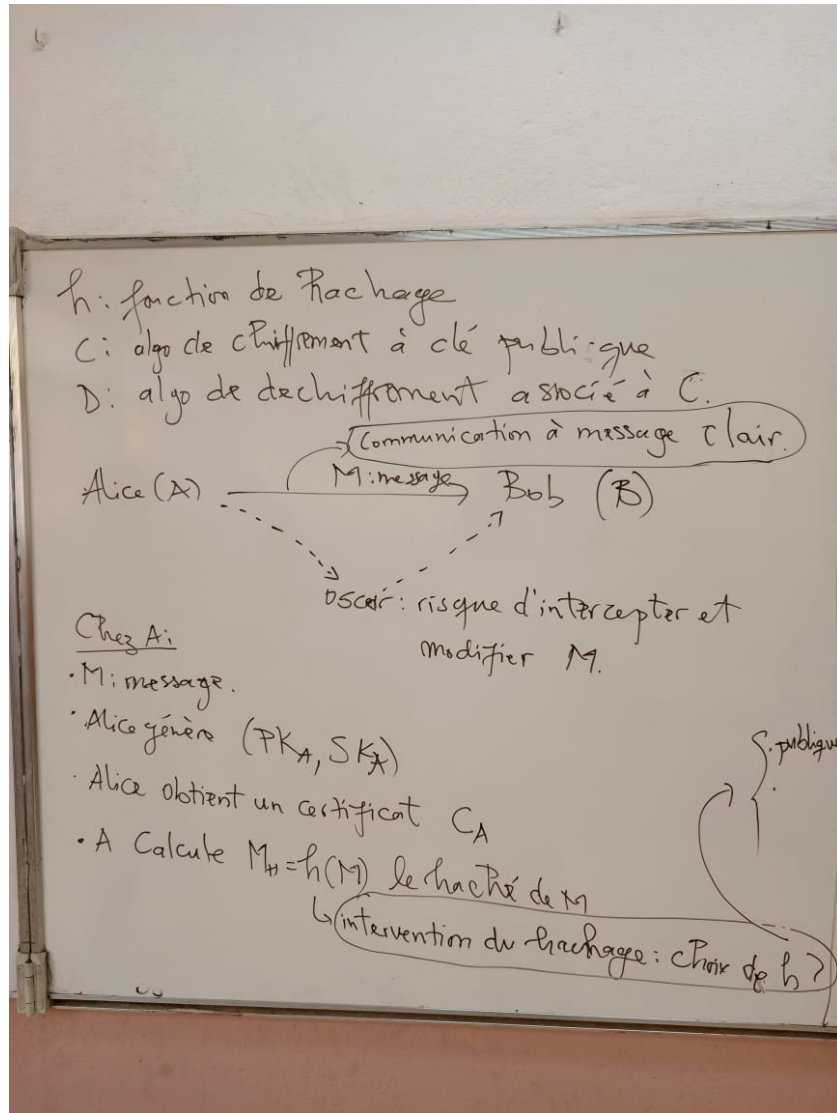 h: fonction de hachage
C: algo de chiffrement à clé publique
D: algo de dechiffrement associé à C.
Communication à message clair.
Alice (A) M: message Bob (B)
Oscar: risque d'intercepter et
modifier M.
Chez A:
• M: message.
• Alice génère (PK_A, SK_A)
• Alice obtient un certificat C_A
• A Calcule M_H = h(M) le haché de M
↳ intervention du hachage: choix de h?
• publique